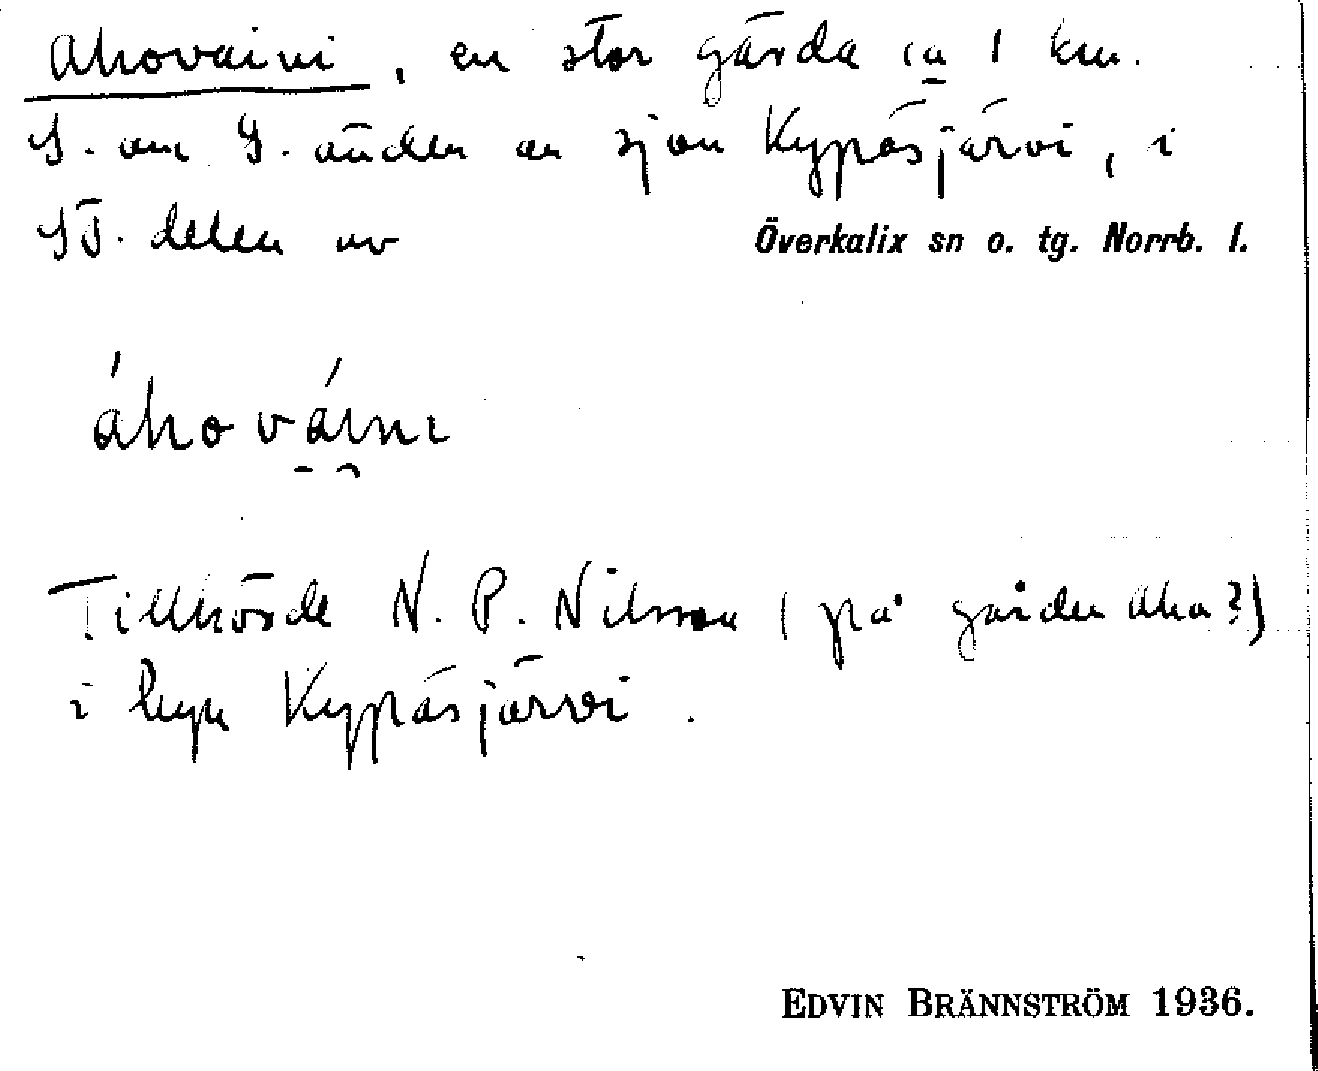 Ahovaini, en stor gärda ca 1 km.
S. om S. änden av sjön Kypäsjärvi, i
SÖ. delen av Överkalix sn o. tg. Norrb. l.
áhováini
Tillhörde N. P. Nilsson (på gården Aho?)
i byn Kypäsjärvi.
EDVIN BRÄNNSTRÖM 1936.